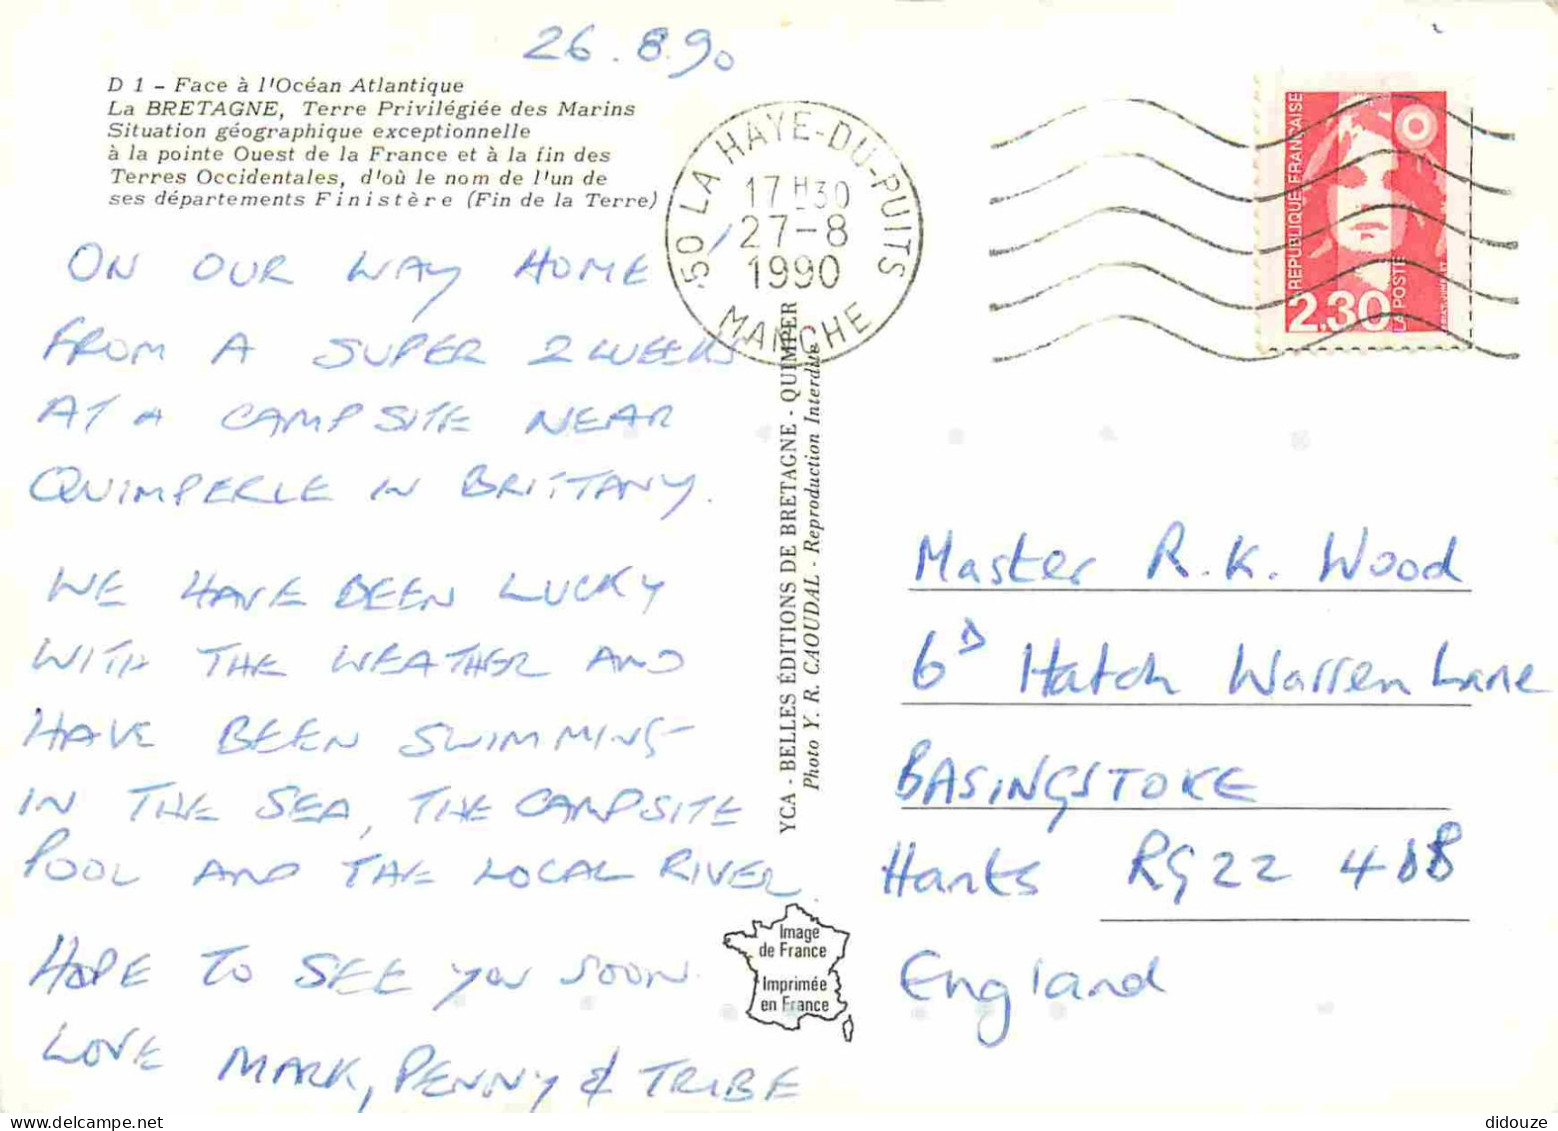 26.8.90
D 1 - Face à l'Océan Atlantique
La BRETAGNE, Terre Privilégiée des Marins
Situation géographique exceptionnelle
à la pointe Ouest de la France et à la fin des
Terres Occidentales, d'où le nom de l'un de
ses départements Finistère (Fin de la Terre)
ON OUR WAY HOME
FROM A SUPER 2 WEEKS
AT A CAMPSITE NEAR
QUIMPERLE IN BRITTANY.
WE HAVE BEEN LUCKY
WITH THE WEATHER AND
HAVE BEEN SWIMMING
IN THE SEA, THE CAMPSITE
POOL AND THE LOCAL RIVER.
HOPE TO SEE YOU SOON
LOVE MARK, PENNY & TRIBE
50 LA HAYE-DU-PUITS
17H30
27-8
1990
MANCHE
YCA - BELLES ÉDITIONS DE BRETAGNE - QUIMPER
Photo Y. R. CAOUDAL - Reproduction Interdite
Image
de France
Imprimée
en France
REPUBLIQUE FRANÇAISE
2,30
LA POSTE
Master R.K. Wood
6D Hatch Warren Lane
BASINGSTOKE
Hants RG22
England
didouze